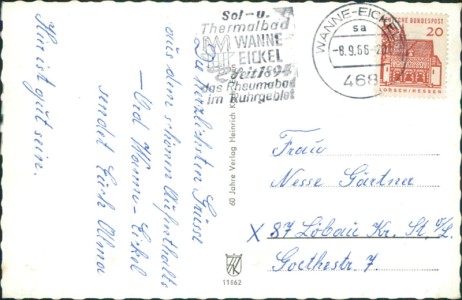 Die herzlichsten Grüsse
aus dem schönen Aufenthalts
– Ort Wanne-Eickel
sendet Euch Oma
Hier ist gut sein.
Sol- u.
Thermalbad
WANNE
EICKEL
Seit 1894
das Rheumabad
im Ruhrgebiet
WANNE-EICKEL
sa
-8.9.66-20
468
DEUTSCHE BUNDESPOST
20
LORSCH/HESSEN
60 Jahre Verlag Heinrich
11862
Frau
Nesse Gärtner
X 87 Löbau Kr. St. i/L.
Goethestr. 7